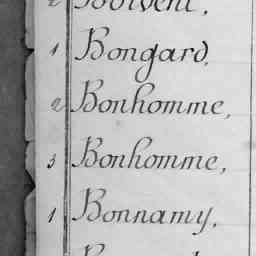 1 Bongard,
2 Bonhomme,
3 Bonhomme,
1 Bonnamy,